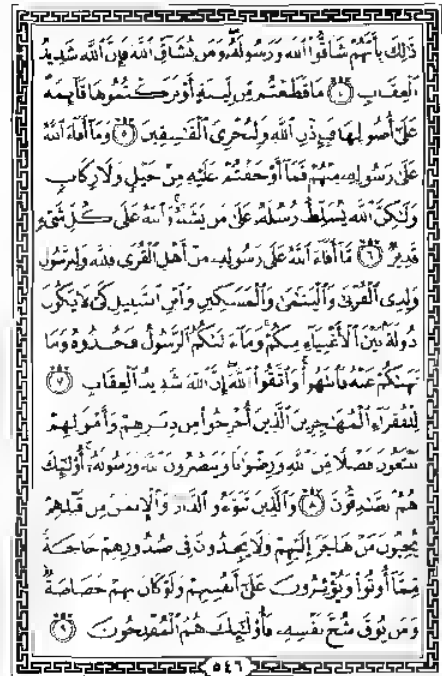 ذَٰلِكَ بِأَنَّهُمْ شَآقُّوا۟ ٱللَّهَ وَرَسُولَهُۥ ۖ وَمَن يُشَآقِّ ٱللَّهَ فَإِنَّ ٱللَّهَ شَدِيدُ
ٱلْعِقَابِ ٤ مَا قَطَعْتُم مِّن لِّينَةٍ أَوْ تَرَكْتُمُوهَا قَآئِمَةً
عَلَىٰٓ أُصُولِهَا فَبِإِذْنِ ٱللَّهِ وَلِيُخْزِىَ ٱلْفَـٰسِقِينَ ٥ وَمَآ أَفَآءَ ٱللَّهُ
عَلَىٰ رَسُولِهِۦ مِنْهُمْ فَمَآ أَوْجَفْتُمْ عَلَيْهِ مِنْ خَيْلٍ وَلَا رِكَابٍ
وَلَـٰكِنَّ ٱللَّهَ يُسَلِّطُ رُسُلَهُۥ عَلَىٰ مَن يَشَآءُ ۚ وَٱللَّهُ عَلَىٰ كُلِّ شَىْءٍ
قَدِيرٌ ٦ مَّآ أَفَآءَ ٱللَّهُ عَلَىٰ رَسُولِهِۦ مِنْ أَهْلِ ٱلْقُرَىٰ فَلِلَّهِ وَلِلرَّسُولِ
وَلِذِى ٱلْقُرْبَىٰ وَٱلْيَتَـٰمَىٰ وَٱلْمَسَـٰكِينِ وَٱبْنِ ٱلسَّبِيلِ كَىْ لَا يَكُونَ
دُولَةًۢ بَيْنَ ٱلْأَغْنِيَآءِ مِنكُمْ ۚ وَمَآ ءَاتَىٰكُمُ ٱلرَّسُولُ فَخُذُوهُ وَمَا
نَهَىٰكُمْ عَنْهُ فَٱنتَهُوا۟ ۚ وَٱتَّقُوا۟ ٱللَّهَ ۖ إِنَّ ٱللَّهَ شَدِيدُ ٱلْعِقَابِ ٧
لِلْفُقَرَآءِ ٱلْمُهَـٰجِرِينَ ٱلَّذِينَ أُخْرِجُوا۟ مِن دِيَـٰرِهِمْ وَأَمْوَٰلِهِمْ
يَبْتَغُونَ فَضْلًا مِّنَ ٱللَّهِ وَرِضْوَٰنًا وَيَنصُرُونَ ٱللَّهَ وَرَسُولَهُۥٓ ۚ أُو۟لَـٰٓئِكَ
هُمُ ٱلصَّـٰدِقُونَ ٨ وَٱلَّذِينَ تَبَوَّءُو ٱلدَّارَ وَٱلْإِيمَـٰنَ مِن قَبْلِهِمْ
يُحِبُّونَ مَنْ هَاجَرَ إِلَيْهِمْ وَلَا يَجِدُونَ فِى صُدُورِهِمْ حَاجَةً
مِّمَّآ أُوتُوا۟ وَيُؤْثِرُونَ عَلَىٰٓ أَنفُسِهِمْ وَلَوْ كَانَ بِهِمْ خَصَاصَةٌ ۚ
وَمَن يُوقَ شُحَّ نَفْسِهِۦ فَأُو۟لَـٰٓئِكَ هُمُ ٱلْمُفْلِحُونَ ٩
٥٤٦